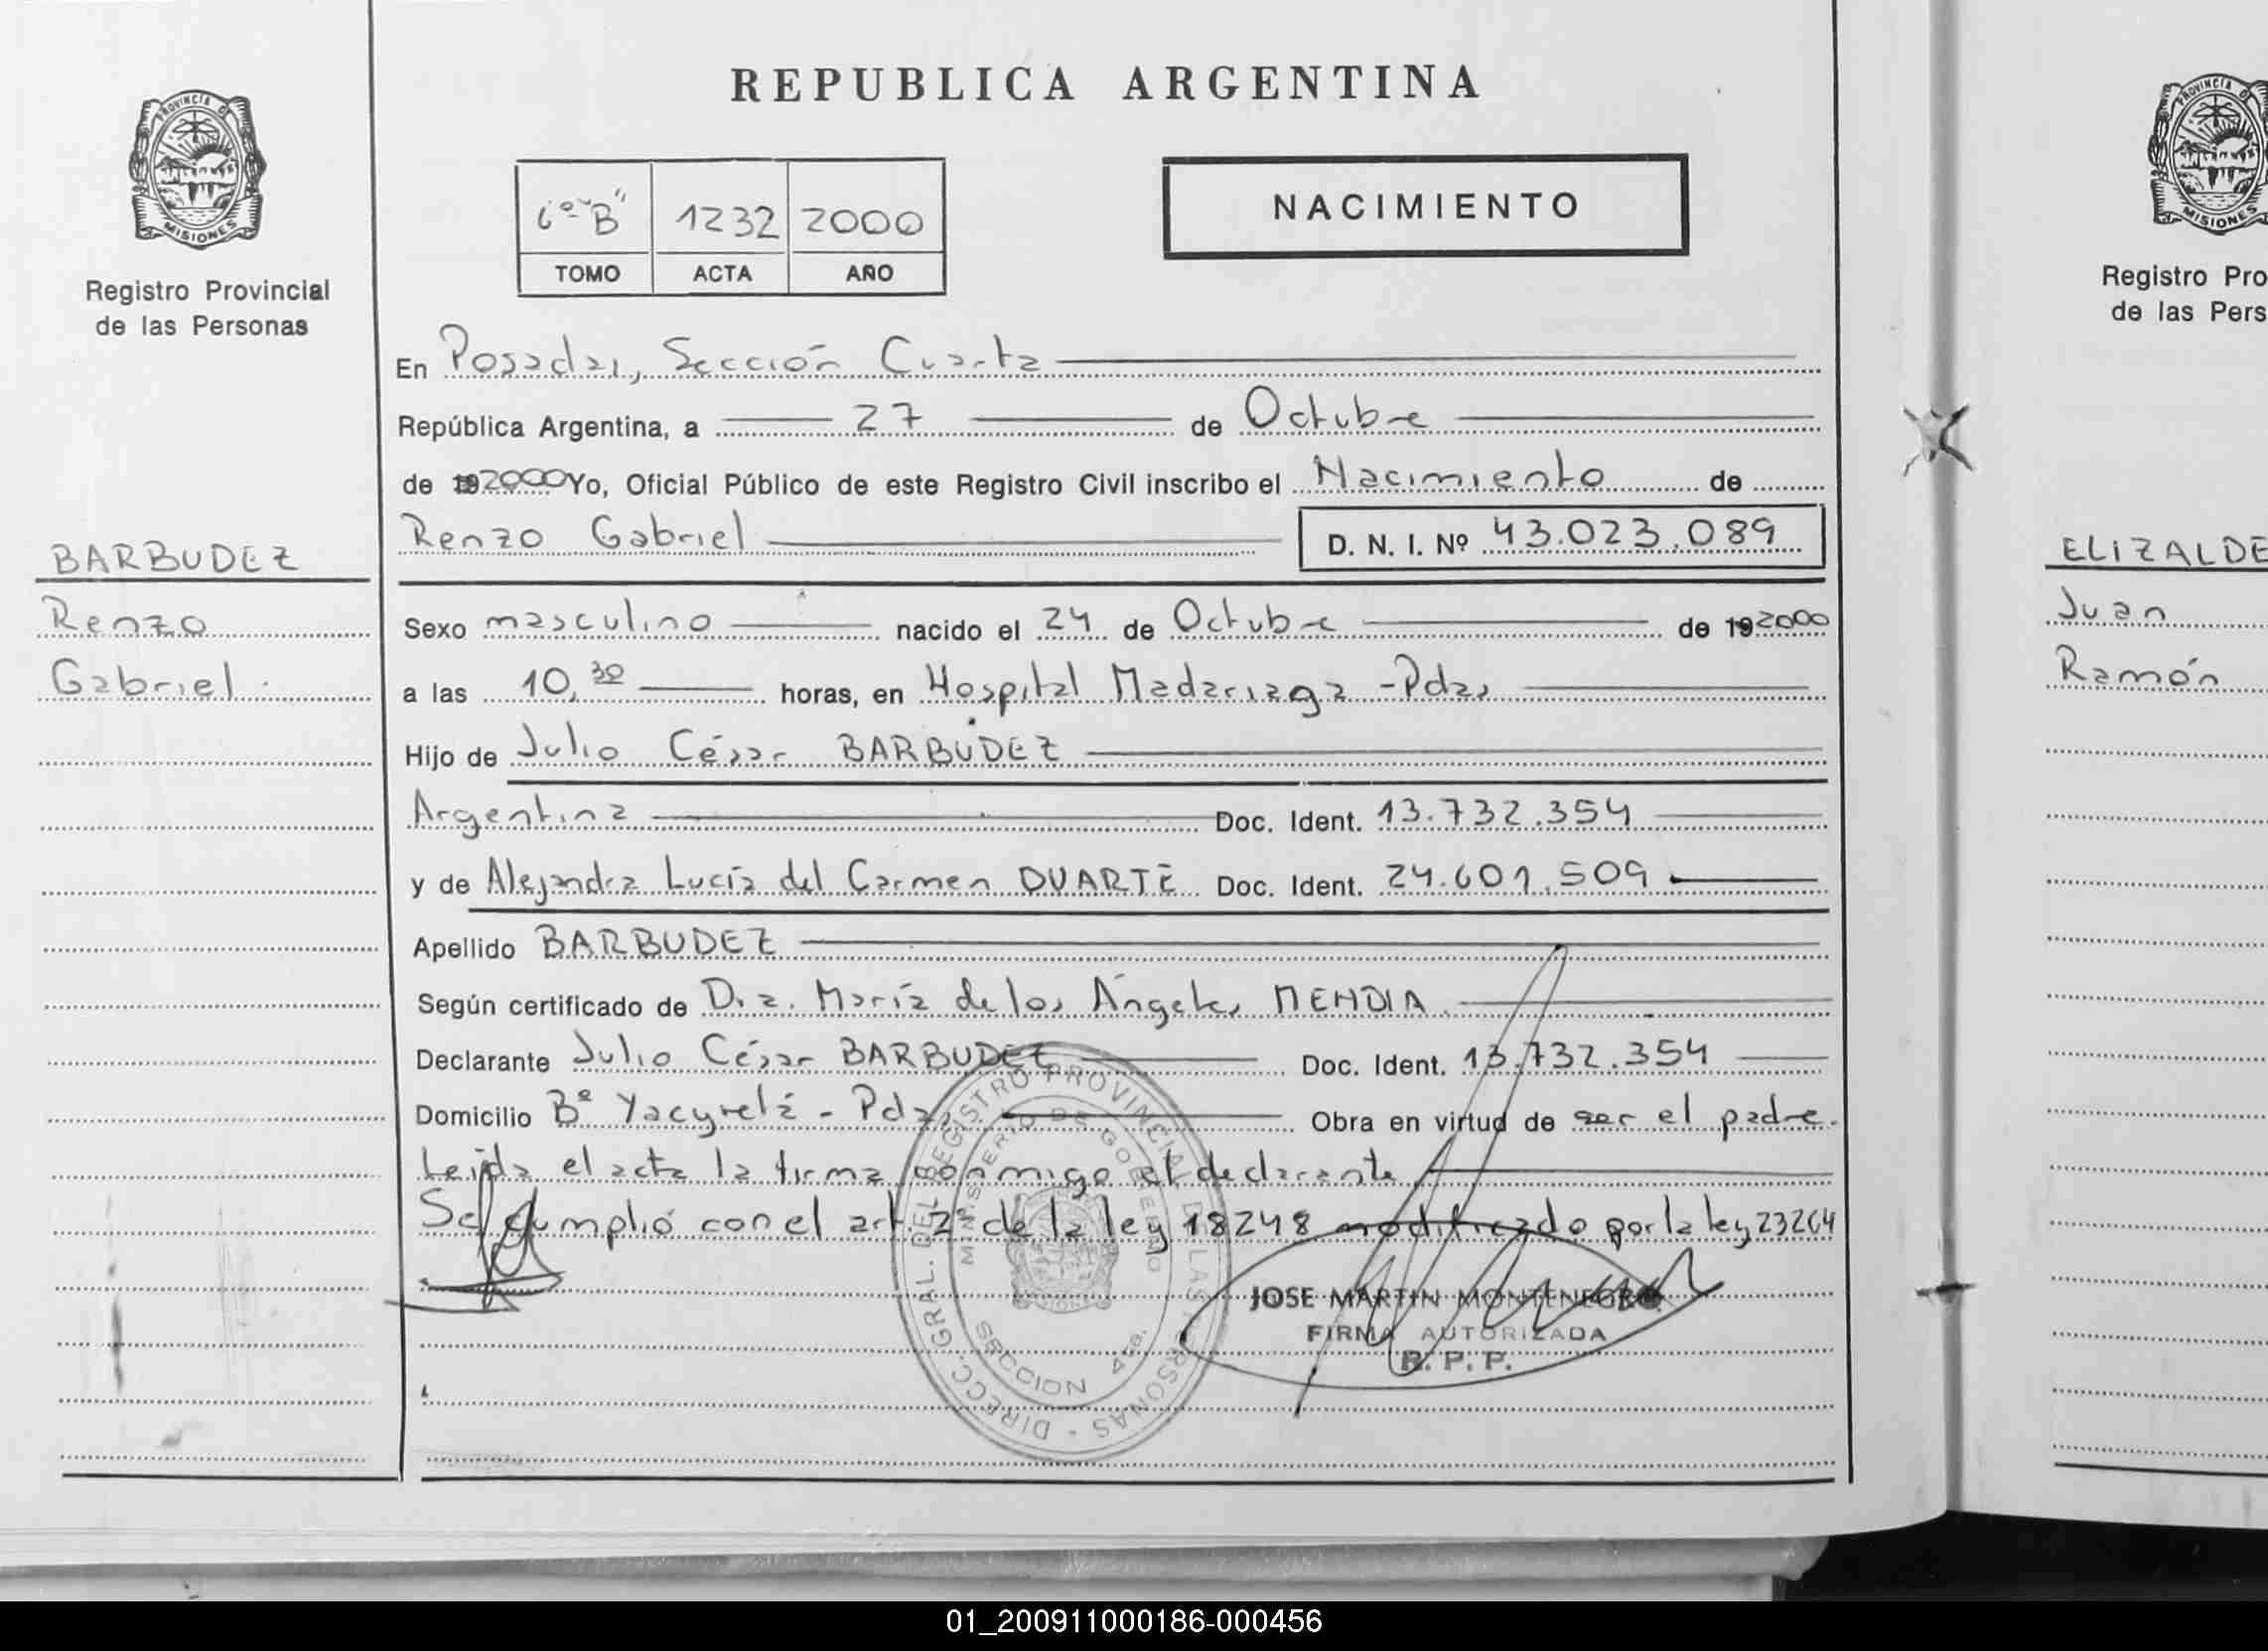 REPUBLICA ARGENTINA
PROVINCIA DE
MISIONES
Registro Provincial
de las Personas
BARBUDEZ
Renzo
Gabriel
6º "B" 1232 2000
TOMO ACTA AÑO
NACIMIENTO
En Posadas, Sección Cuarta
República Argentina, a 27 de Octubre
de 192000 Yo, Oficial Público de este Registro Civil inscribo el Nacimiento de
Renzo Gabriel D. N. I. Nº 43.023.089
Sexo masculino nacido el 24 de Octubre de 192000
a las 10,30 horas, en Hospital Madariaga - Pdas
Hijo de Julio César BARBUDEZ
Argentina Doc. Ident. 13.732.354
y de Alejandra Lucía del Carmen DUARTE Doc. Ident. 24.601.509
Apellido BARBUDEZ
Según certificado de Dra. María de los Ángeles MENDIA.
Declarante Julio César BARBUDEZ Doc. Ident. 13.732.354
Domicilio Bº Yacyretá - Pdas, Obra en virtud de ser el padre.
Leída el acta la firma conmigo el declarante
Se cumplió con el art. 2º de la ley 18248 modificado por la ley 23264
DIRECC. GRAL. DEL REGISTRO PROVINCIAL DE LAS PERSONAS
MINISTERIO DE GOBIERNO
SECCION 4ta.
JOSE MARTIN MONTENEGRO
FIRMA AUTORIZADA
R. P. P.
PROVINCIA DE
MISIONES
Registro Pro
de las Pers
ELIZALDE
Juan
Ramón
01_200911000186-000456